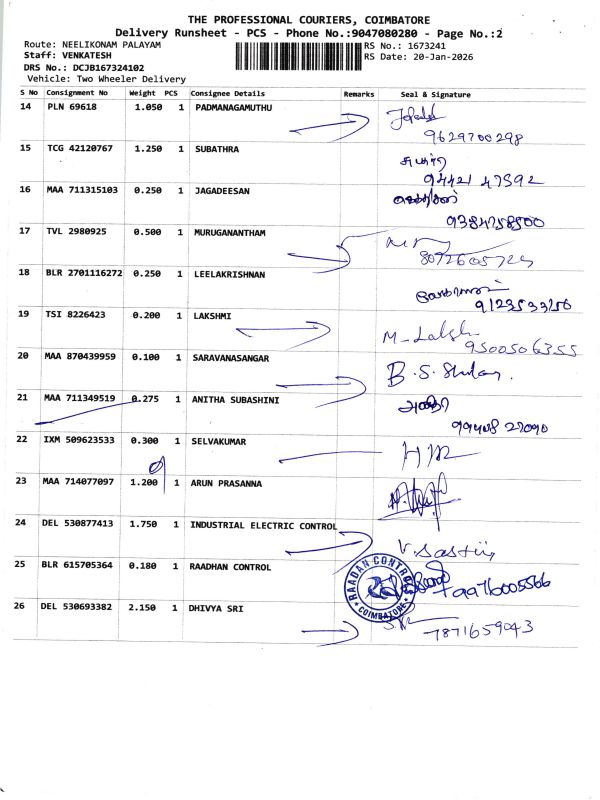 THE PROFESSIONAL COURIERS, COIMBATORE
Delivery Runsheet - PCS - Phone No.:9047080280 - Page No.:2
Route: NEELIKONAM PALAYAM
RS No.: 1673241
Staff: VENKATESH
RS Date: 20-Jan-2026
DRS No.: DCJB167324102
Vehicle: Two Wheeler Delivery
S No Consignment No Weight PCS Consignee Details Remarks Seal & Signature
14 PLN 69618 1.050 1 PADMANAGAMUTHU
9629700298
15 TCG 42120767 1.250 1 SUBATHRA
94421 47592
16 MAA 711315103 0.250 1 JAGADEESAN
9384758500
17 TVL 2980925 0.500 1 MURUGANANTHAM
8072605725
18 BLR 2701116272 0.250 1 LEELAKRISHNAN
9123533256
19 TSI 8226423 0.200 1 LAKSHMI
9500506355
20 MAA 870439959 0.100 1 SARAVANASANGAR
B.S.
21 MAA 711349519 0.275 1 ANITHA SUBASHINI
22 IXM 509623533 0.300 1 SELVAKUMAR
23 MAA 714077097 1.200 1 ARUN PRASANNA
24 DEL 530877413 1.750 1 INDUSTRIAL ELECTRIC CONTROL
25 BLR 615705364 0.180 1 RAADHAN CONTROL
COIMBATORE
9976005566
26 DEL 530693382 2.150 1 DHIVYA SRI
7871659043